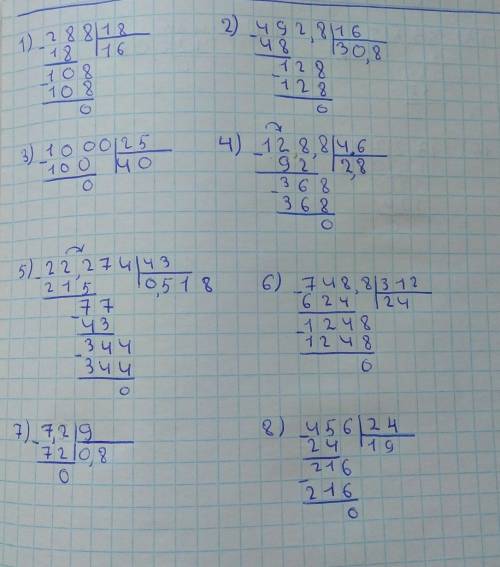 1) 288 | 18
- 18 | 16
- 108
108
0
2) - 492,8 | 16
48 | 30,8
- 128
128
0
3) - 1000 | 25
100 | 40
0
4) - 12,8,8 | 4,6
92 | 2,8
- 368
368
0
5) - 22,274 | 43
215 | 0,518
- 77
43
- 344
344
0
6) - 748,8 | 312
624 | 24
- 1248
1248
0
7) - 7,2 | 9
72 | 0,8
0
8) - 456 | 24
24 | 19
- 216
216
0